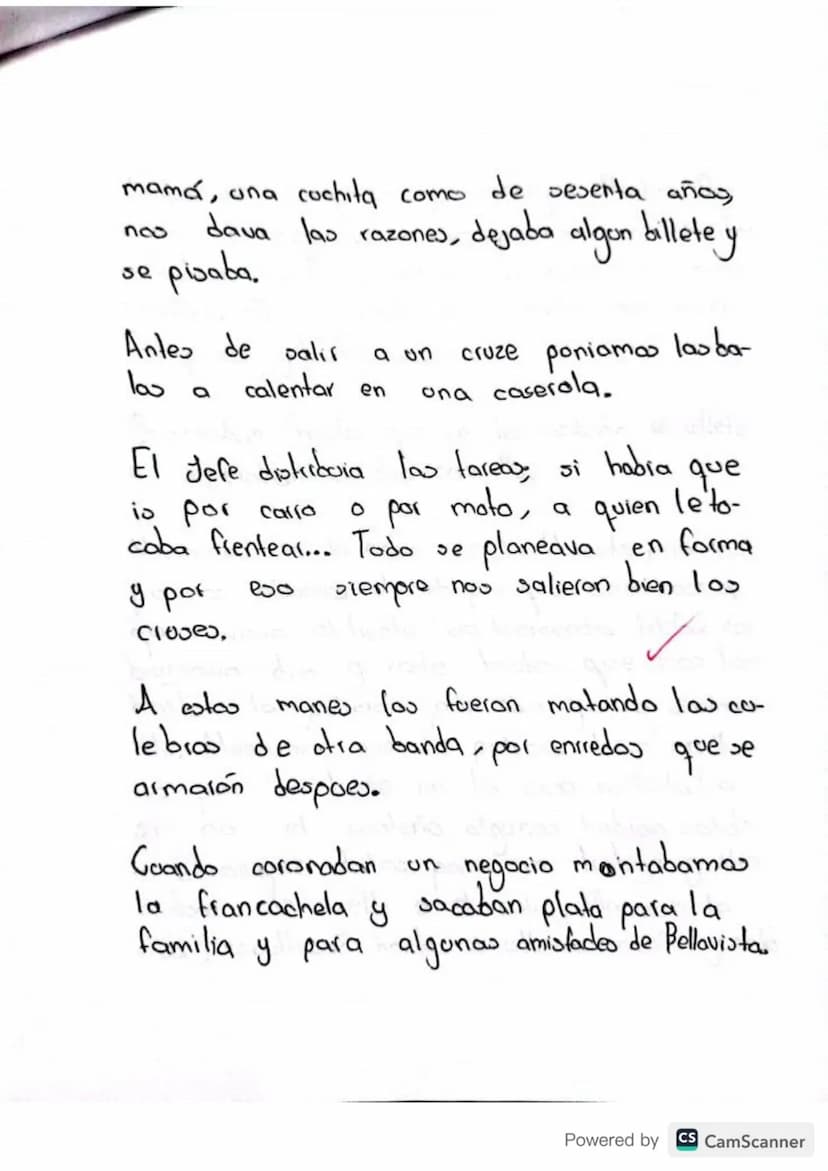 mamá, una cuchita como de sesenta años,
nos dava las razones, dejaba algun billete y
se pisaba.
Antes de salir a un cruze poniamos las ba-
las a calentar en una caserola.
El Jefe distribuia las tareas; si habia que
is por carro o por moto, a quien le to-
caba frentear... Todo se planeava en forma
y por eso siempre nos salieron bien los
cruses.
A estos manes los fueron matando las cu-
lebras de otra banda, por enredos que se
armarón despues.
Cuando coronaban un negocio montabamos
la francachela y sacaban plata para la
familia y para algunas amistades de Bellavista.
Powered by CS CamScanner